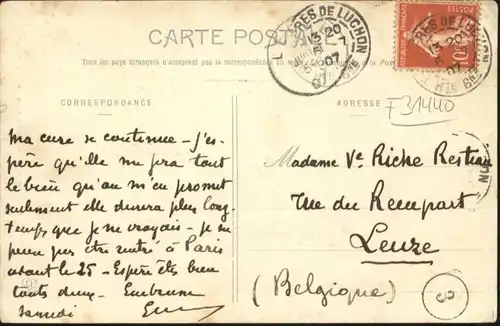 CARTE POSTALE
Tous les pays étrangers n'acceptent pas la correspondance au
CORRESPONDANCE
ADRESSE
F31440
RES DE LUCHON
13 20
07
Hte GNE
POSTES
10
RES DE LUCHON
13 20
07
Hte GNE
Ma cure se continue – j'es-
père qu'elle me fera tout
le bien qu'on m'en promet
seulement elle durera plus long-
temps que je ne croyais – je ne
peux pas être rentré à Paris
avant le 25 – Espère êtes bien
touts deux – Embrasse
Samedi
Madame Ve Riche Resteau
Rue du Rempart
Leuze
(Belgique)
3